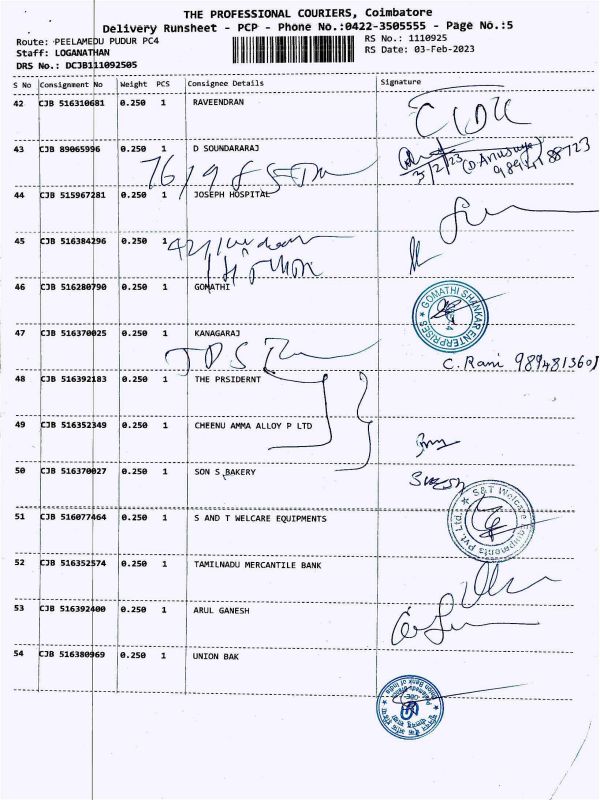 THE PROFESSIONAL COURIERS, Coimbatore
Delivery Runsheet - PCP - Phone No.:0422-3505555 - Page No.:5
Route: PEELAMEDU PUDUR PC4
RS No.: 1110925
Staff: LOGANATHAN
RS Date: 03-Feb-2023
DRS No.: DCJB111092505
S No Consignment No Weight PCS Consignee Details Signature
42 CJB 516310681 0.250 1 RAVEENDRAN
43 CJB 89065996 0.250 1 D SOUNDARARAJ
3/2/23 (D.Anusuya)
44 CJB 515967281 0.250 1 JOSEPH HOSPITAL
45 CJB 516384296 0.250 1
46 CJB 516280790 0.250 1 GOMATHI
GOMATHI SHANKAR ENTERPRISES
47 CJB 516370025 0.250 1 KANAGARAJ
C. Rani 9894813605
48 CJB 516392183 0.250 1 THE PRSIDERNT
49 CJB 516352349 0.250 1 CHEENU AMMA ALLOY P LTD
50 CJB 516370027 0.250 1 SON S BAKERY
51 CJB 516077464 0.250 1 S AND T WELCARE EQUIPMENTS
S&T Welcare Equipments Pvt. Ltd.
52 CJB 516352574 0.250 1 TAMILNADU MERCANTILE BANK
53 CJB 516392400 0.250 1 ARUL GANESH
54 CJB 516380969 0.250 1 UNION BAK
Union Bank of India